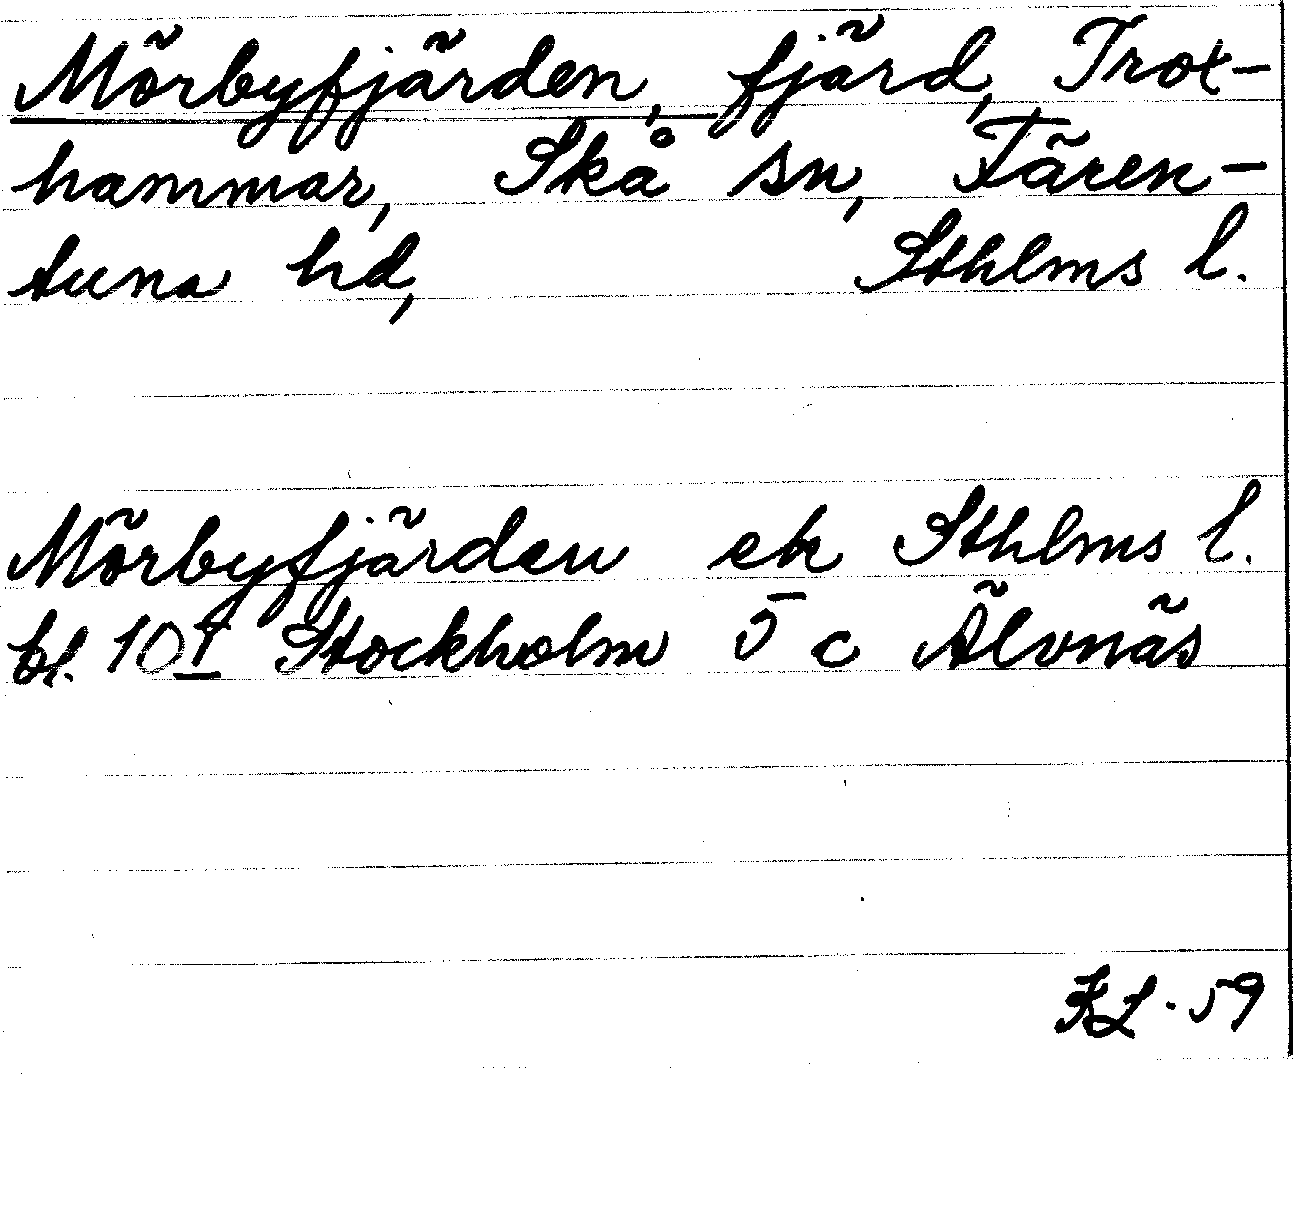 Mörbyfjärden, fjärd, Trox-
hammar, Skå sn, Fären-
tuna hd, Sthlms l.
Mörbyfjärden ek Sthlms l.
bl. 10I Stockholm 5 c Älvnäs
KL - 59